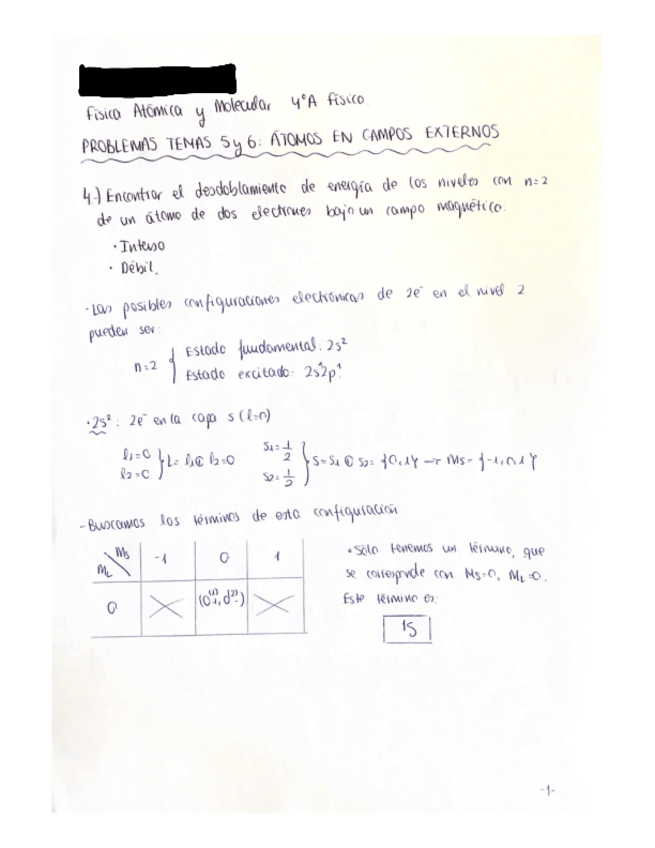 Física Atómica y Molecular 4ºA Físico
PROBLEMAS TEMAS 5 y 6: ÁTOMOS EN CAMPOS EXTERNOS
4.) Encontrar el desdoblamiento de energía de los niveles con n=2
de un átomo de dos electrones bajo un campo magnético:
· Intenso
· Débil.
· Las posibles configuraciones electrónicas de 2e⁻ en el nivel 2
pueden ser:
n=2 { Estado fundamental: 2s²
Estado excitado: 2s¹2p¹.
· 2s²: 2e⁻ en la capa s (l=0)
l₁=0
l₂=0 } L= l₁⊕l₂=0
s₁=1/2
s₂=1/2 } S=s₁⊕s₂= {0,1} → Ms= {-1,0,1}
- Buscamos los términos de esta configuración
Ms -1 0 1
ML
0
· Sólo tenemos un término, que
se corresponde con Ms=0, ML=0.
Este término es:
¹S
-1-